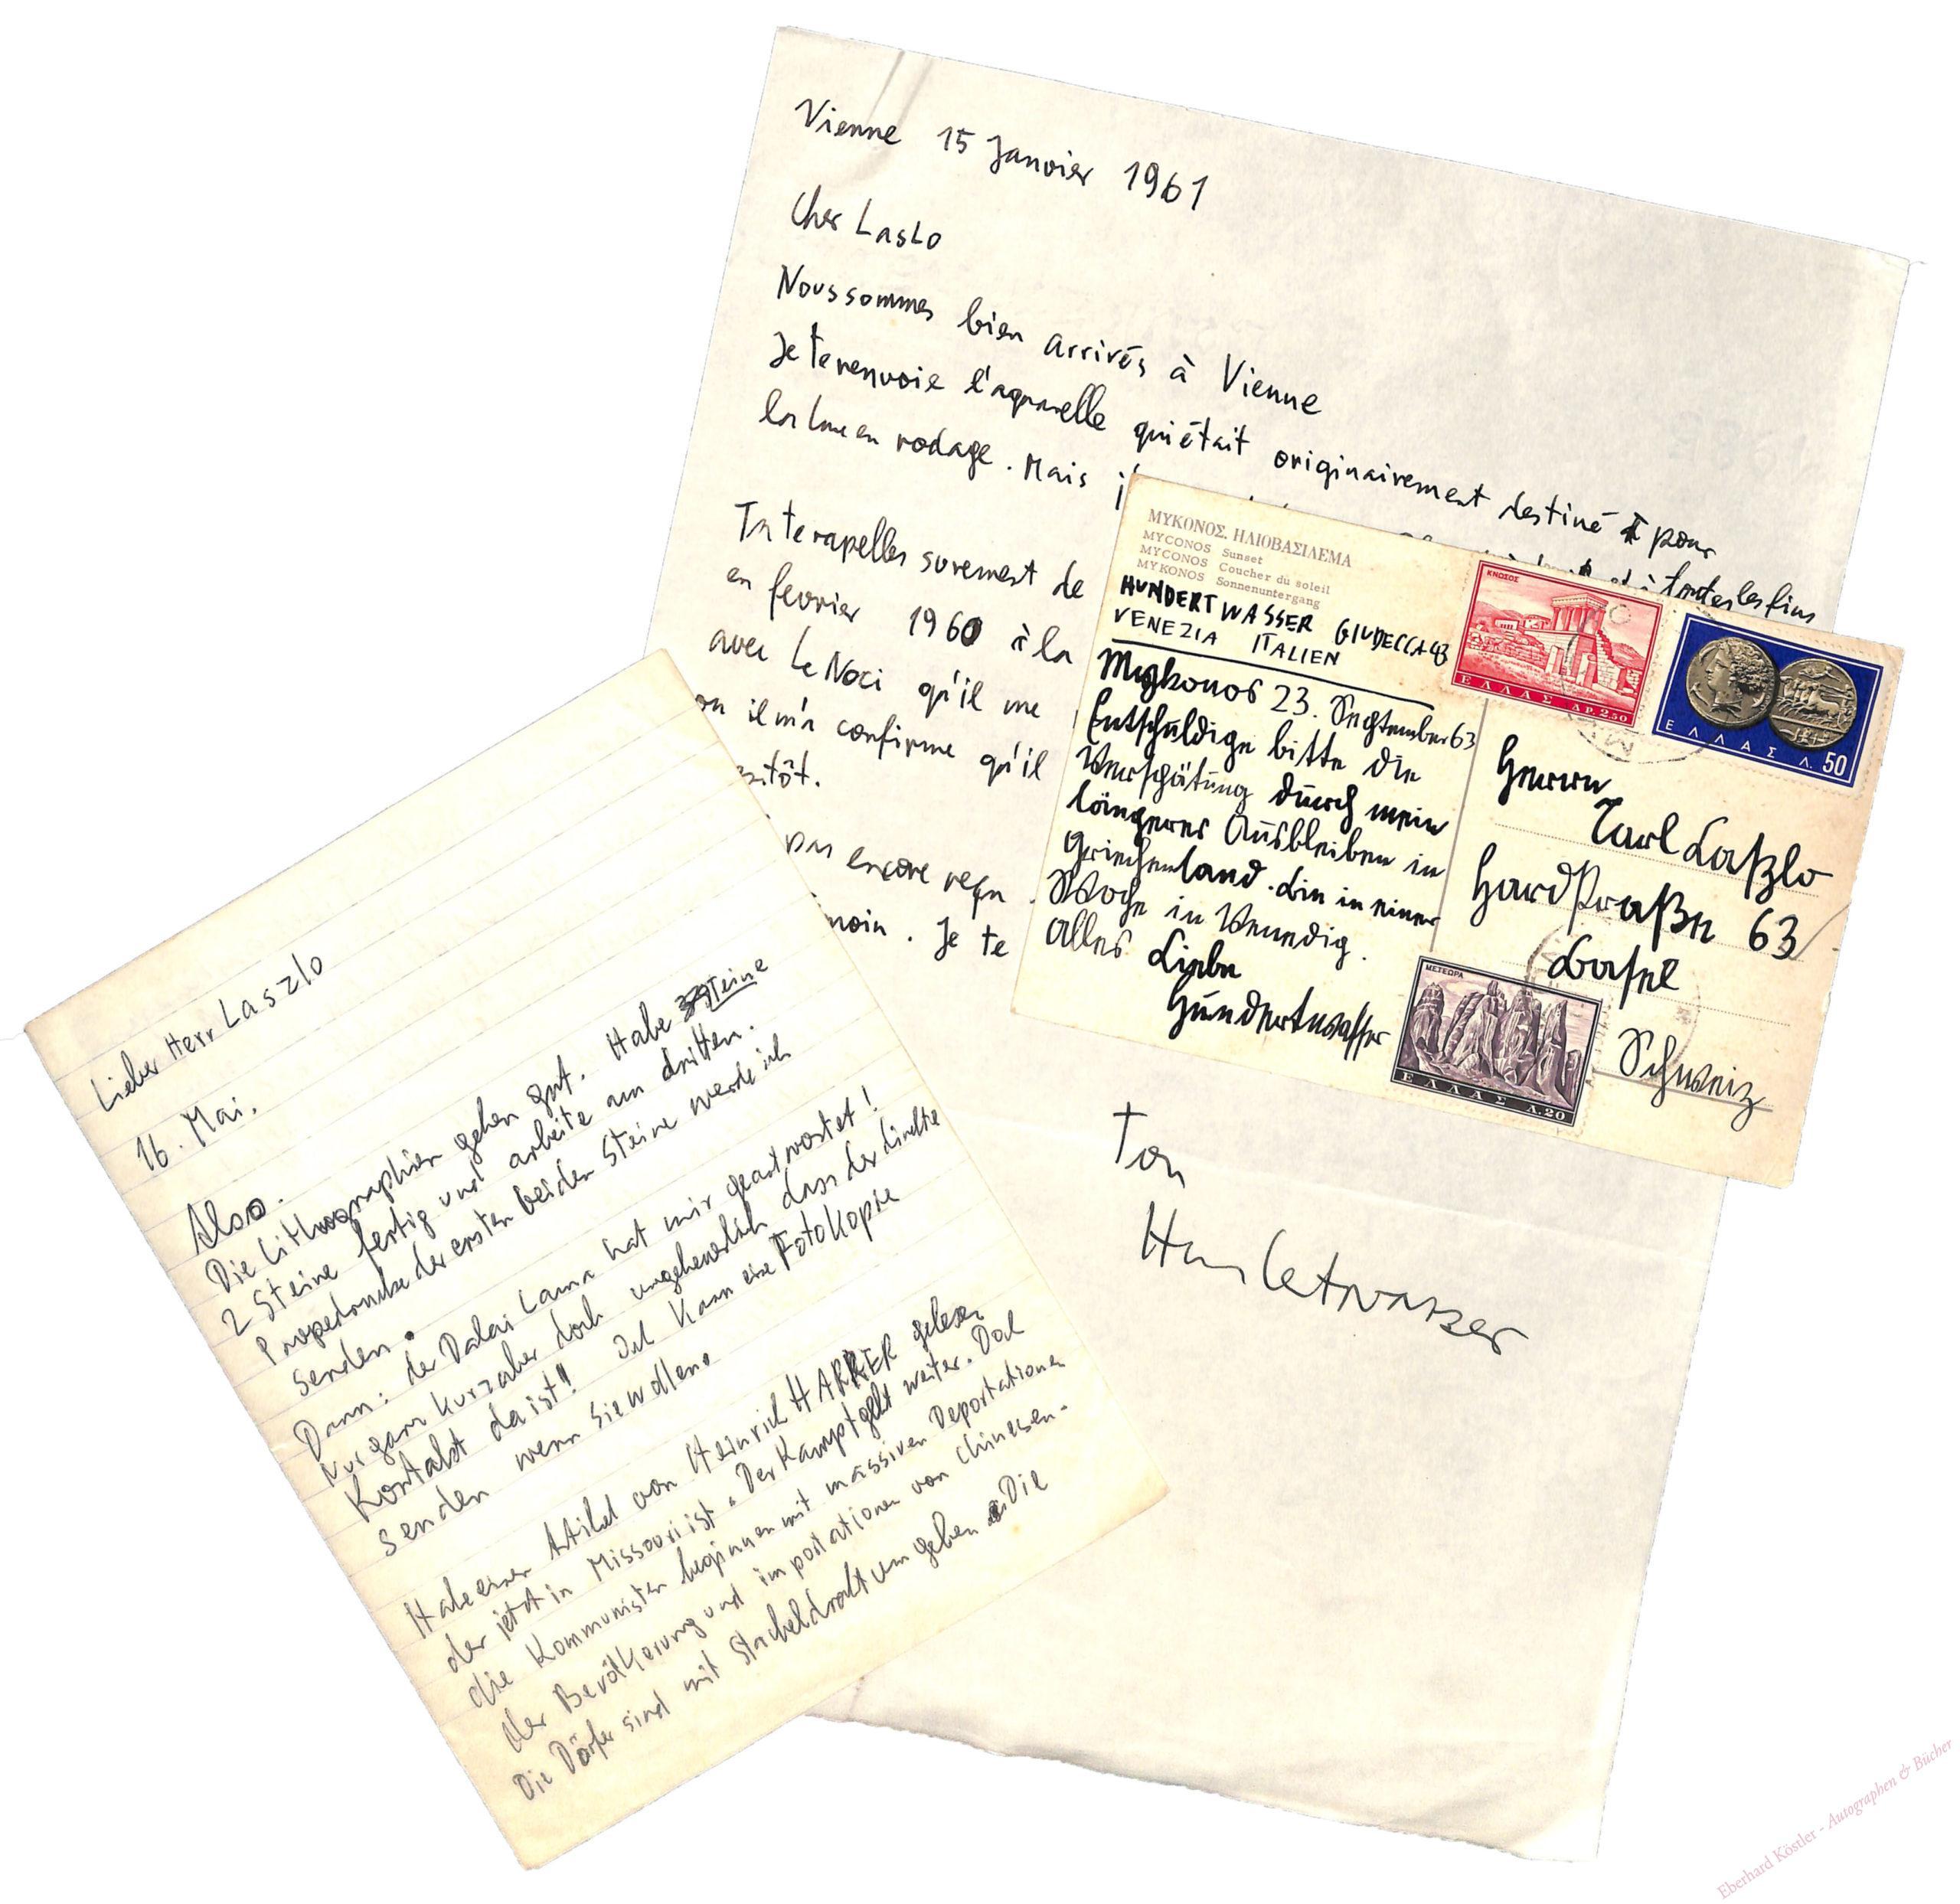 Vienne 15 Janvier 1961
Cher Laslo
Nous sommes bien arrivés à Vienne
Je te renvoie l'aquarelle qui était originairement destiné pour
en rodage. Mais
toutes les fins
Tu te rapelles surement de
en fevrier 1960 à la
avec Le Noci qu'il me
ou il m'a confirme qu'il
encore reçu
Je te
Ton
Hundertwasser
ΜΥΚΟΝΟΣ. ΗΛΙΟΒΑΣΙΛΕΜΑ
MYCONOS Sunset
MYCONOS Coucher du soleil
MYKONOS Sonnenuntergang
HUNDERTWASSER GIUDECCA 43
VENEZIA ITALIEN
Mykonos 23. September 63
Entschuldige bitte die
Verspätung durch mein
längeres Ausbleiben in
Griechenland. Bin in einer
Woche in Venedig.
Alles Liebe
Hundertwasser
ΚΝΩΣΟΣ
ΕΛΛΑΣ ΔΡ. 2.50
ΕΛΛΑΣ Λ. 50
Herrn
Carl Laszlo
Hardstraße 63
Basel
Schweiz
ΜΕΤΕΩΡΑ
ΕΛΛΑΣ Λ. 20
Lieber Herr Laszlo
16. Mai.
Also.
Die Lithographien gehen gut. Habe Steine
2 Steine fertig und arbeite am dritten.
Propedrucke der ersten beiden Steine werde ich
senden.
Dann: der Dalai Lama hat mir geantwortet!
Nur ganz kurz aber doch ungeheuerlich dass der direkte
Kontakt da ist! Ich kann eine Fotokopie
senden wenn Sie wollen.
Habe einen Artikel von Heinrich HARRER gelesen
der jetzt in Missouri ist. Der Kampf geht weiter. Doch
die Kommunisten beginnen mit massiven Deportationen
der Bevölkerung und importationen von Chinesen.
Die Dörfer sind mit Stacheldraht umgeben. Die
Eberhard Köstler - Autographen & Bücher